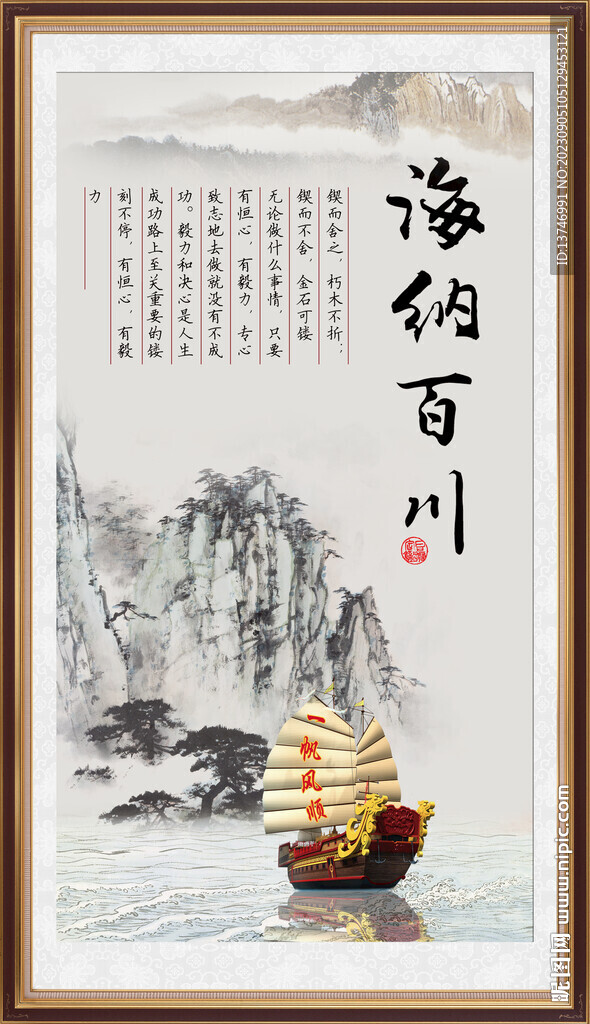 海纳百川
锲而舍之，朽木不折；
锲而不舍，金石可镂
无论做什么事情，只要
有恒心，有毅力，专心
致志地去做就没有不成
功。毅力和决心是人生
成功路上至关重要的镂
刻不停，有恒心，有毅
力
一帆风顺
ID:13746991 NO:20230905105129453121
昵图网 www.nipic.com